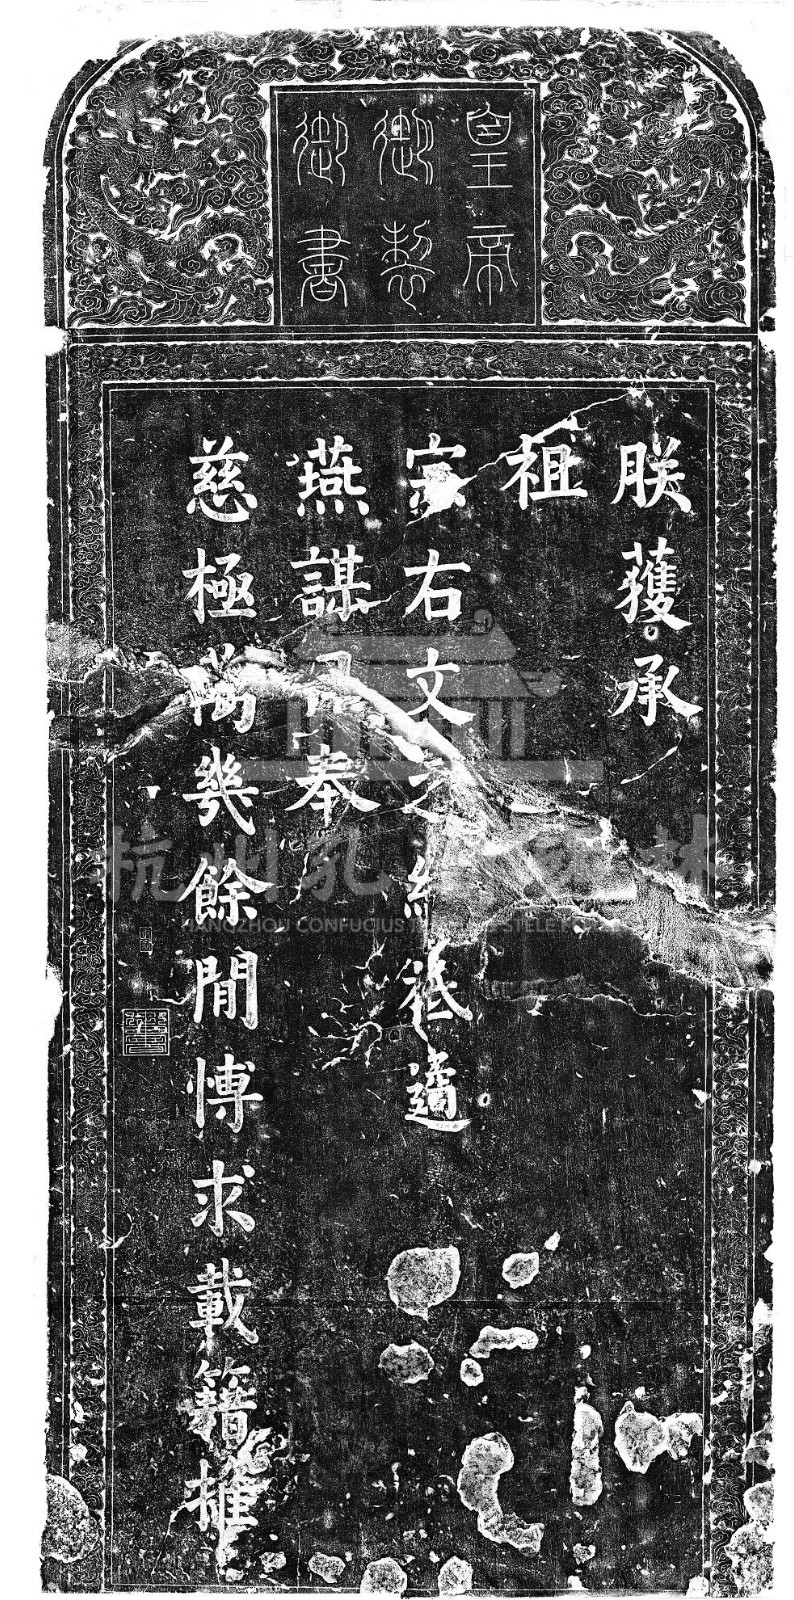 皇帝
御製
御書
朕獲承
祖
宗右文之緒祗遹
燕謀日奉
慈極萬幾餘閒博求載籍推
杭州孔庙碑林
HANGZHOU CONFUCIUS TEMPLE STELE FOREST